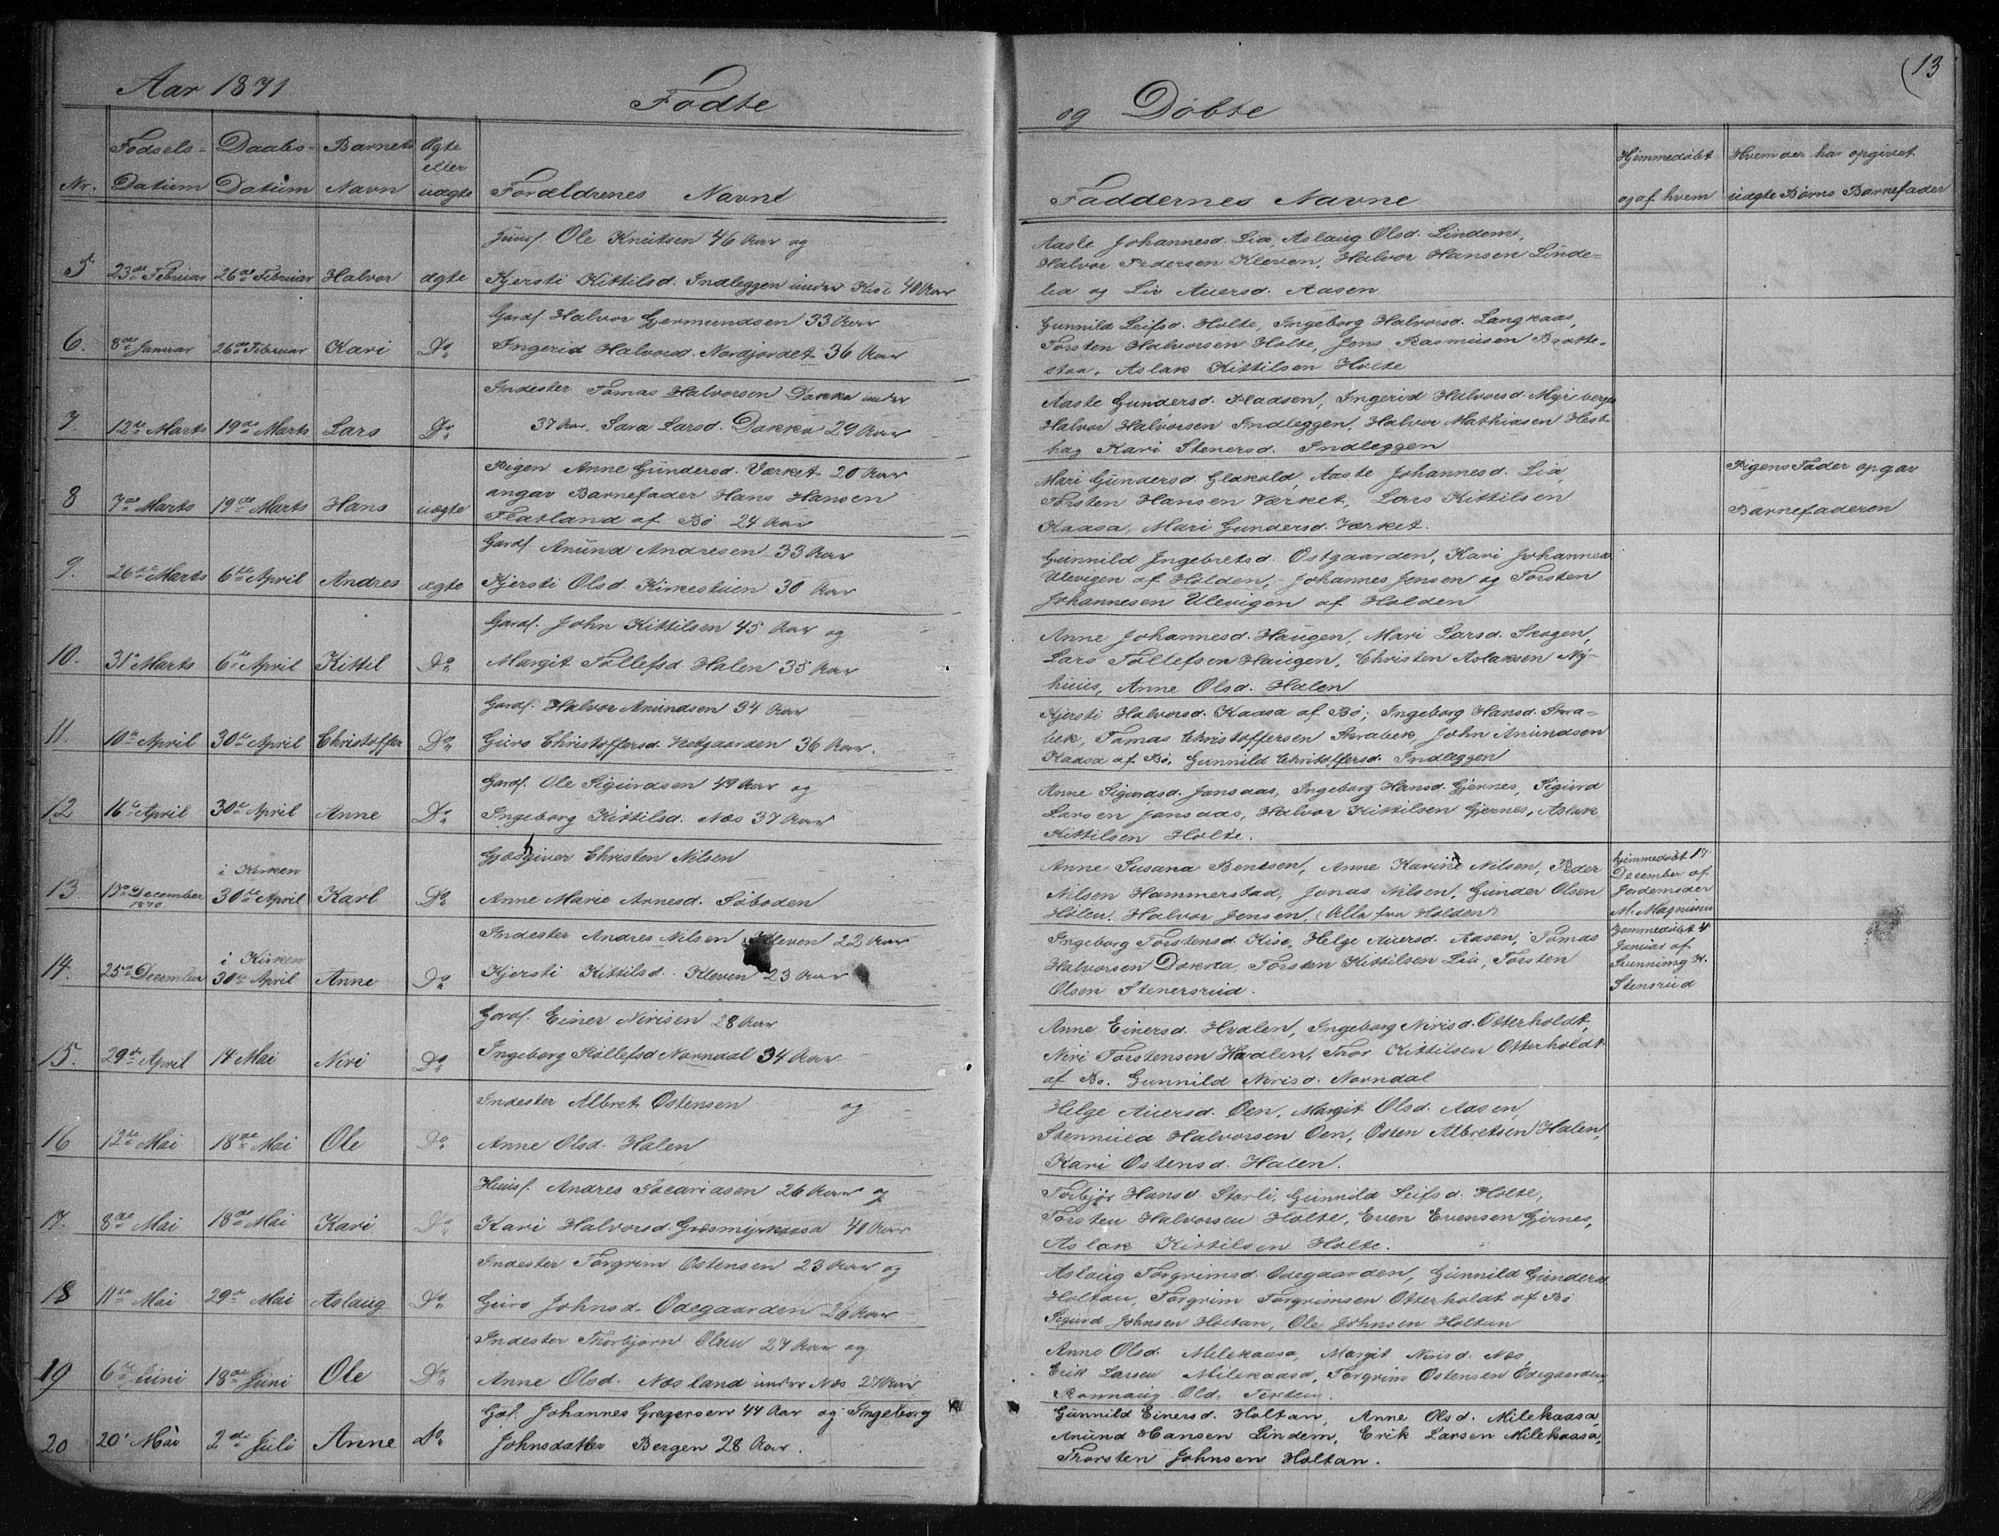 Aar 1871 Fødte og Døbte 13
Nr. Fødsels-Datum Daabs-Datum Barnets Navn Ægte eller uægte Forældrenes Navne Faddernes Navne Hjemmedøbt og af hvem Hvem der har opgivet uægte Børns Barnefader
5 23de Februar 26de Februar Halvor ægte
Huusf. Ole Knutsen 46 Aar og
Kjersti Kittilsd. Indleggen under Kise 40 Aar
Aaste Johannesd. Lia, Aslaug Olsd. Lindem,
Halvor Pedersen Kleven, Halvor Hansen Linde-
lia og Liv Aversd. Aasen
6. 8de Januar 26de Februar Kari Do
Gardf. Halvor Gjermundsen 33 Aar
Ingerid Halvorsd. Nordjordet 36 Aar
Gunnild Leifsd. Holte, Ingeborg Halvorsd. Langkaas,
Torsten Halvorsen Holte, Jens Rasmusen Bratte-
staa, Aslak Kittilsen Holte
7. 12te Marts 19de Marts Lars Do
Inderster Tomas Halvorsen Dakka under
37 Aar. Sara Larsd. Dakka 29 Aar
Aaste Gundersd. Flaasen, Ingerid Halvorsd. Myrberget
Halvor Halvorsen Indleggen, Halvor Mathiasen Hest-
hag Kari Stenersd. Indleggen
8 7de Marts 19de Marts Hans uægte
Pigen Anne Gundersd. Værket 20 Aar
angav Barnefader Hans Hansen
Flatland af Bø 24 Aar
Mari Gundersd. Glakold, Aaste Johannesd. Lia,
Torsten Hansen Værket, Lars Kittilsen
Kaasa, Mari Gundersd. Værket.
Pigens Fader opgav
Barnefaderen
9. 26de Marts 6te April Andres ægte
Gardf. Anund Andresen 33 Aar
Kjersti Olsd. Kirkestuen 30 Aar
Gunnild Ingebretsd. Østgaarden, Kari Johannesd
Ulevigen af Holden, Johannes Jensen og Torsten
Johannesen Ulevigen af Holden
10. 31' Marts 6te April Kittil Do
Gardf. John Kittilsen 45 Aar og
Margit Tollefsd Halen 35 Aar
Anne Johannesd. Haugen, Mari Larsd. Skogen,
Lars Tollefsen Haugen, Christen Aslaksen Ny-
huus, Anne Olsd. Halen
11. 10de April 30te April Christoffer Do
Gardf. Halvor Anundsen 34 Aar
Guro Christoffersd. Vestgaarden 36 Aar.
Kjersti Halvorsd. Kaasa af Bø, Ingeborg Hansd. Skra-
bek, Tomas Christoffersen Skrabek, John Anundsen
Kaasa af Bø, Gunnild Chritoffersd. Indleggen
12 16te April 30te April Anne Do
Gardf. Ole Sigurdsen 49 Aar og
Ingeborg Kittilsd. Næs 37 Aar
Anne Sigurdsd. Jonsaas, Ingeborg Hansd. Gjernes, Sigurd
Larsen Jonsaas, Halvor Kittilsen Gjernes, Aslak
Kittilsen Holte.
13 17de December 1870 i Kirken 30te April Karl Do
Gjæstgiver Christen Nilsen
Anne Marie Arnesd. Søboden
Anne Susana Bentsen, Anne Karine Nilsen, Peder
Nilsen Hammerstad, Jonas Nilsen, Gunder Olsen
Holen. Halvor Jensen, (Alle fra Holden)
Hjemmedøbt 17
December af
Jordemoder
M. Magnusen
14. 25de December i Kirken 30te April Anne Do
Inderster Andres Nilsen Kleven 22 Aar
Kjersti Kittilsd. Kleven 23 Aar
Ingeborg Torstensd. Kise, Helge Aversd. Aasen, Tomas
Halvorsen Dakka, Torsten Kittilsen Lia, Torsten
Olsen Stenersrud.
Hjemmedøbt 4
Januar af
H.
Stensrud
15. 29de April 14 Mai Niri Do
Gardf. Einer Nirisen 28 Aar
Ingeborg Rollefsd Norndal 34 Aar
Anne Einersd. Hvalen, Ingeborg Nirisd. Otterholdt,
Niri Torstensen Hvalen, Tror Kittilsen Otterholdt
af Bø. Gunnild Nirisd. Norndal
16 12te Mai 18de Mai Ole Do
Inderster Albret Østensen og
Anne Olsd. Halen
Helge Aversd. Øen, Margit Olsd. Aasen,
Stennuld Halvorsen Øen, Østen Albretsen Halen,
Kari Østensd. Halen.
17. 8de Mai 18de Mai Kari Do
Huusf. Andres Sacariasen 26 Aar og
Kari Halvorsd Græsmyrkaasa 40 Aar
Torbjør Hansd. Starli, Gunnild Leifsd. Holte,
Torsten Halvorsen Holte, Even Evensen Gjernes,
Aslak Kittilsen Holte.
18 11te Mai 29de Mai Aslaug Do
Inderster Torgrim Østensen 23 Aar og
Guro Johnsd. Ødegaarden 26 Aar
Aslaug Torgrimsd. Ødegaarden, Gunnild Gundersd
Holtan, Torgrim Torgrimsen Otterholdt af Bø
Sigurd Johnsen Holtan, Ole Johnsen Holtan
19 6te Juni 18de Juni Ole Do
Inderster Thorbjørn Olsen 27 Aar og
Anne Olsd. Næsland under Næs 27 Aar
Anne Olsd. Milekaasa, Margit Nirisd. Næs
Erik Larsen Milekaasa, Torgrim Østensen Ødegaarden,
Rønnaug Old.
20 20' Mai 2de Juli Anne Do
Gaf. Johannes Gregersen 44 Aar og Ingeborg
Johnsdatter Bergen 28 Aar.
Gunnild Einersd. Holtan, Anne Olsd. Milekaasa,
Anund Hansen Lindem, Erik Larsen Milekaasa,
Thorsten Johnsen Holtan.